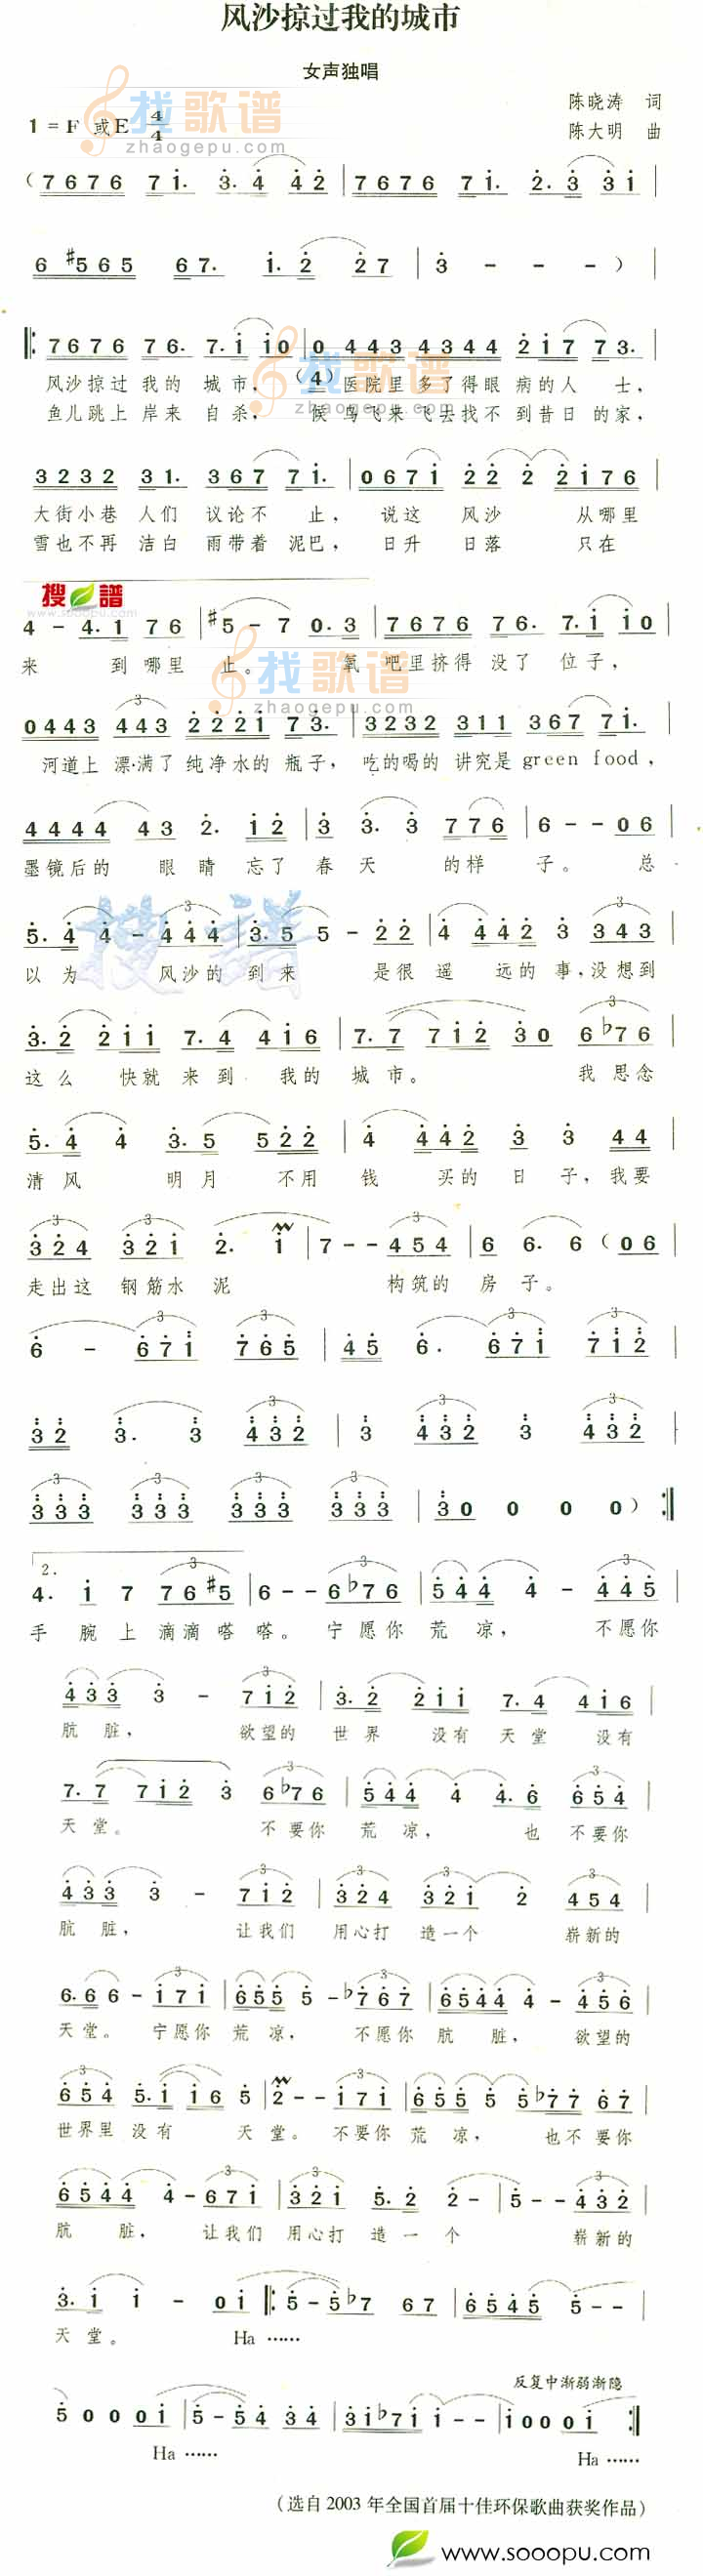 风沙掠过我的城市
女声独唱
陈晓涛 词
1 = F 或E 4/4 陈大明 曲
找歌谱
zhaogepu.com
( 7 6 7 6 7 1. 3. 4 4 2 | 7 6 7 6 7 1. 2. 3 3 1 |
6 #5 6 5 6 7. 1. 2 2 7 | 3 - - - ) |
‖: 7 6 7 6 7 6. 7. 1 1 0 | 0 4 4 3 4 3 4 4 2 1 7 7 3. |
风沙掠过 我的 城市, (4) 医院里多了得眼 病的人 士,
鱼儿跳上 岸来 自杀, 候鸟飞来飞去找不 到昔日 的家,
3 2 3 2 3 1. 3 6 7 7 1. | 0 6 7 1 2 2 2 2 1 7 6 |
大街小巷 人们 议论不 止, 说这 风沙 从哪里
雪也不再 洁白 雨带着 泥巴, 日升 日落 只在
搜谱
www.sooopu.com
4 - 4. 1 7 6 | #5 - 7 0. 3 | 7 6 7 6 7 6. 7. 1 1 0 |
来 到哪里 止。 氧 吧里挤得 没了 位子,
0 4 4 3 4 4 3 2 2 2 1 7 3. | 3 2 3 2 3 1 1 3 6 7 7 1. |
河道上 漂满了 纯净水的 瓶子, 吃的喝的 讲究是 green food,
4 4 4 4 4 3 2. 1 2 | 3 3. 3 7 7 6 | 6 - - 0 6 |
墨镜后的 眼睛 忘了 春天 的样 子。 总
5. 4 4 - 4 4 4 | 3. 5 5 - 2 2 | 4 4 4 2 3 3 4 3 |
以为 风沙的 到来 是很 遥 远的事,没想到
3. 2 2 1 1 7. 4 4 1 6 | 7. 7 7 1 2 3 0 6 b7 6 |
这么 快就 来到 我的 城市。 我思念
5. 4 4 3. 5 5 2 2 | 4 4 4 2 3 3 4 4 |
清风 明月 不用 钱 买的 日 子,我要
3 2 4 3 2 1 2. 1 | 7 - - 4 5 4 | 6 6. 6 ( 0 6 |
走出这 钢筋水 泥 构筑的 房 子。
6 - 6 7 1 7 6 5 | 4 5 6. 6 7 1 7 1 2 |
3 2 3. 3 4 3 2 | 3 4 3 2 3 4 3 2 |
3 3 3 3 3 3 3 3 3 3 3 3 | 3 0 0 0 0 ) :‖
2.
4. 1 7 7 6 #5 | 6 - - 6 b7 6 | 5 4 4 4 - 4 4 5 |
手 腕上 滴滴 嗒 嗒。 宁愿你 荒 凉, 不愿你
4 3 3 3 - 7 1 2 | 3. 2 2 1 1 7. 4 4 1 6 |
肮 脏, 欲望的 世界 没有 天堂 没有
7. 7 7 1 2 3 6 b7 6 | 5 4 4 4 4. 6 6 5 4 |
天堂。 不要你 荒 凉, 也 不要你
4 3 3 3 - 7 1 2 | 3 2 4 3 2 1 2 4 5 4 |
肮 脏, 让我们 用心打 造一个 崭新的
6. 6 6 - 1 7 1 | 6 5 5 5 - b7 6 7 | 6 5 4 4 4 - 4 5 6 |
天堂。 宁愿你 荒 凉, 不愿你 肮 脏, 欲望的
6 5 4 5. 1 1 6 5 | 2 - - 1 7 1 | 6 5 5 5 5 b7 7 6 7 |
世界里 没有 天堂。 不要你 荒 凉, 也不 要你
6 5 4 4 4 - 6 7 1 | 3 2 1 5. 2 2 - | 5 - - 4 3 2 |
肮 脏, 让我们 用心打 造一 个 崭新的
3. 1 1 - 0 1 ‖: 5 - 5 b7 6 7 | 6 5 4 5 5 - - |
天堂。 Ha ……
反复中渐弱渐隐
5 0 0 0 1 | 5 - 5 4 3 4 | 3 1 b7 1 1 - - | 1 0 0 0 1 :‖
Ha …… Ha ……
(选自 2003 年全国首届十佳环保歌曲获奖作品)
www.sooopu.com